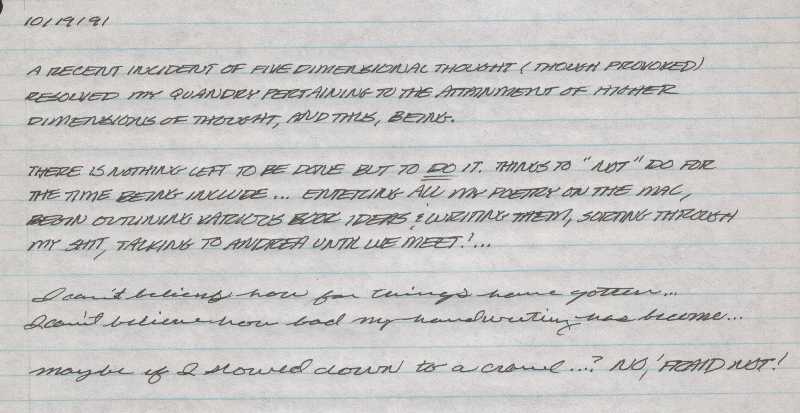 10/19/91
A RECENT INCIDENT OF FIVE DIMENSIONAL THOUGHT (THOUGH PROVOKED)
RESOLVED MY QUANDRY PERTAINING TO THE ATTAINMENT OF HIGHER
DIMENSIONS OF THOUGHT, AND THUS, BEING.
THERE IS NOTHING LEFT TO BE DONE BUT TO DO IT. THINGS TO "NOT" DO FOR
THE TIME BEING INCLUDE... ENTERING ALL MY POETRY ON THE MAC,
BEGIN OUTLINING VARIOUS BOOK IDEAS & WRITING THEM, SORTING THROUGH
MY SHIT, TALKING TO ANDREA UNTIL WE MEET!...
I can't believe how far things have gotten...
I can't believe how bad my handwriting has become...
maybe if I slowed down to a crawl...? NO, 'FRAID NOT!